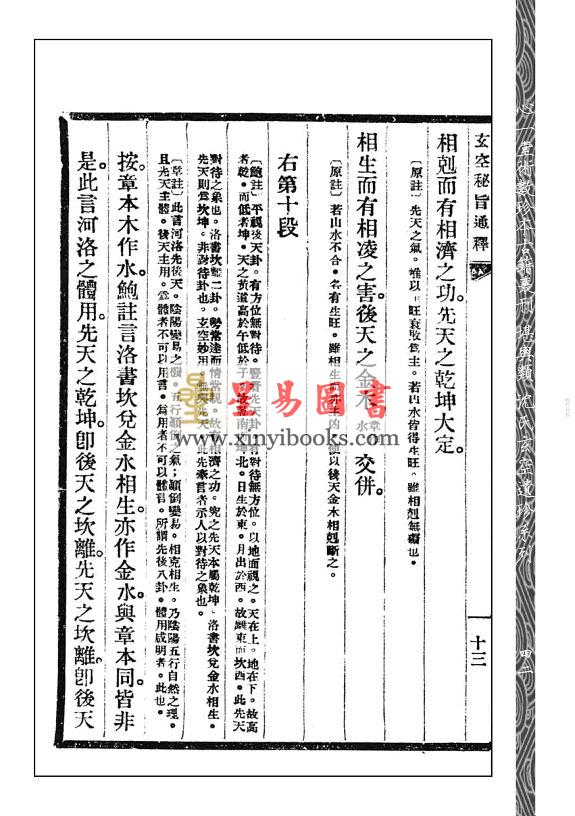 玄空秘旨通釋
十三
相剋而有相濟之功。先天之乾坤大定。
〔原註〕先天之氣。惟以 旺衰敗為主。若山水皆得生旺。雖相剋無礙也。
相生而有相凌之害。後天之金木 水 交併。
〔原註〕若山水不合。各有生旺。雖相生 以後天金木相剋斷之。
右第十段
〔鮑註〕平視後天卦。有方位無對待。豎看先天卦 有對待無方位。以地面視之。天在上。地在下。故高
者乾。而低者坤。天之黃道高於午低於子。故 南 北。日生於東。月出於西。故離東而坎西。此先天
對待之象也。洛書坎 二卦。 情常親。故有相濟之功。究之先天本屬乾坤。洛書坎兌金水相生。
先天則為坎坤。非對待卦也。玄空妙用。 先天。此先 言者示人以對待之象也。
〔章註〕此言河洛先後天。陰陽變易之 。五行顛倒之氣。顛倒變易。相克相生。乃陰陽五行自然之理。
且先天主體。後天主用。為體者不可以用言。為用者不可以體言。所謂先後八卦。體用咸明者。此也。
按章本木作水。鮑註言洛書坎兌金水相生。亦作金水。與章本同。皆非
是。此言河洛之體用。先天之乾坤。卽後天之坎離。先天之坎離。卽後天
心一堂術數珍本古籍叢刊 堪輿類 沈氏玄空遺珍系列
四二
星易圖書
www.xinyibooks.com